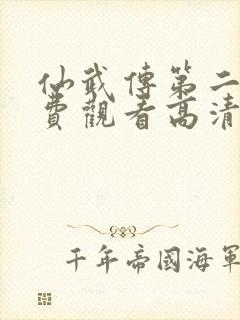 仙武傳第二
費觀看高清
千年帝國海軍